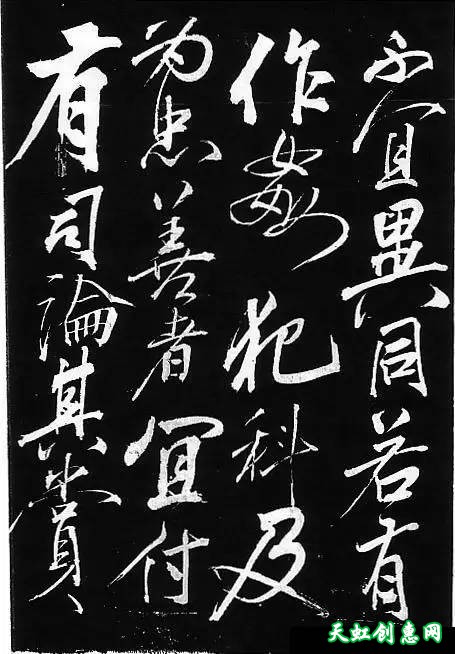 不宜異同若有
作姦犯科及
為忠善者宜付
有司論其賞
天虹创意网